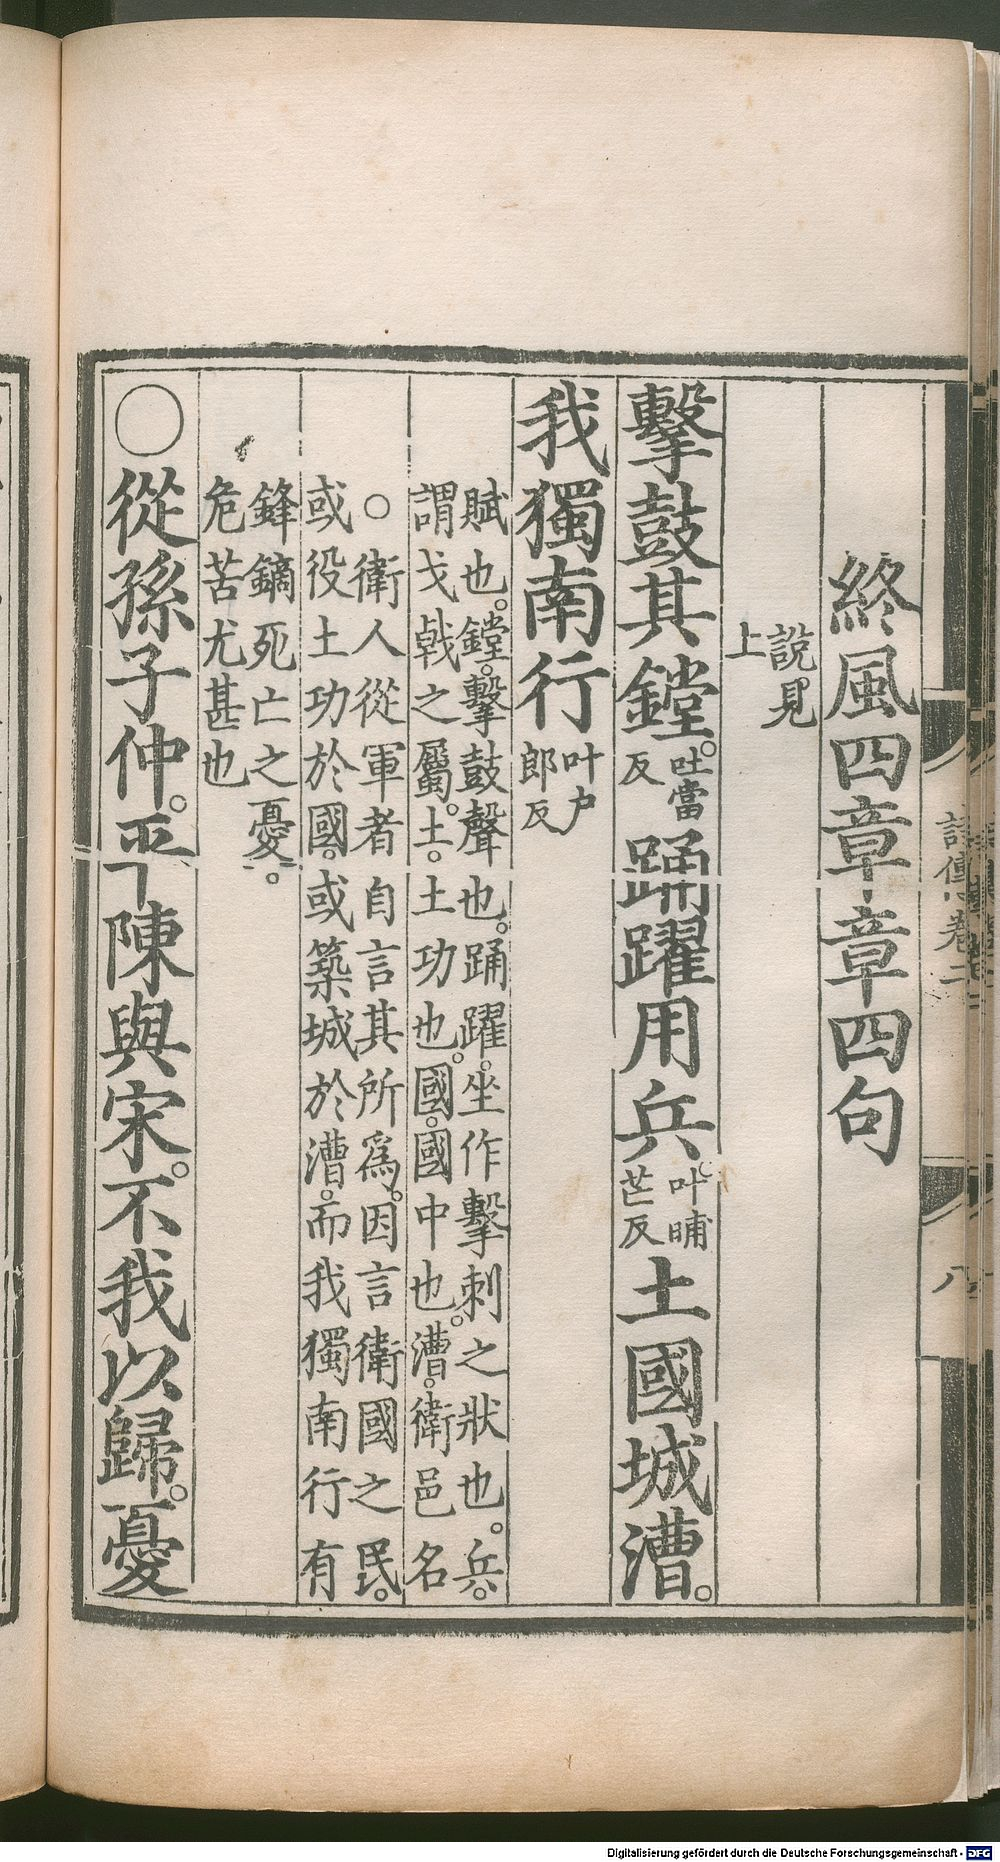 終風四章章四句
說見
上
擊鼓其鏜。吐當反踊躍用兵。叶晡芒反土國城漕。
我獨南行叶户郎反
賦也。鏜。擊鼓聲也。踊躍。坐作擊刺之狀也。兵。
謂戈戟之屬。土。土功也。國。國中也。漕。衛邑名
○衛人從軍者自言其所為。因言衛國之民。
或役土功於國。或築城於漕。而我獨南行有
鋒鏑死亡之憂。
危苦尤甚也
○從孫子仲。平陳與宋。不我以歸。憂
詩傳卷二
八
Digitalisierung gefördert durch die Deutsche Forschungsgemeinschaft - DFG